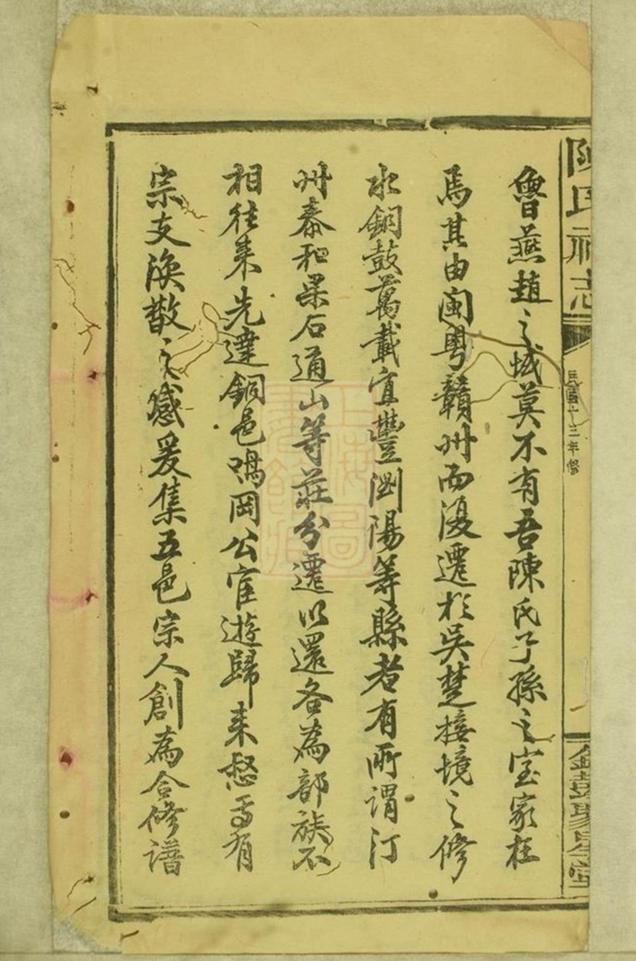 陳氏祠志
民國十三年修
魯燕趙之城莫不有吾陳氏子孫之室家在
焉其由閩粤贛州而復遷於吳楚接境之修
水銅鼓萬載宜豐瀏陽等縣者有所謂汀
州泰和果石通山等莊分遷以還各為部族不
相往來先達銅邑鳴岡公宦遊歸来愁焉有
宗支渙散之感爰集五邑宗人創為合修譜